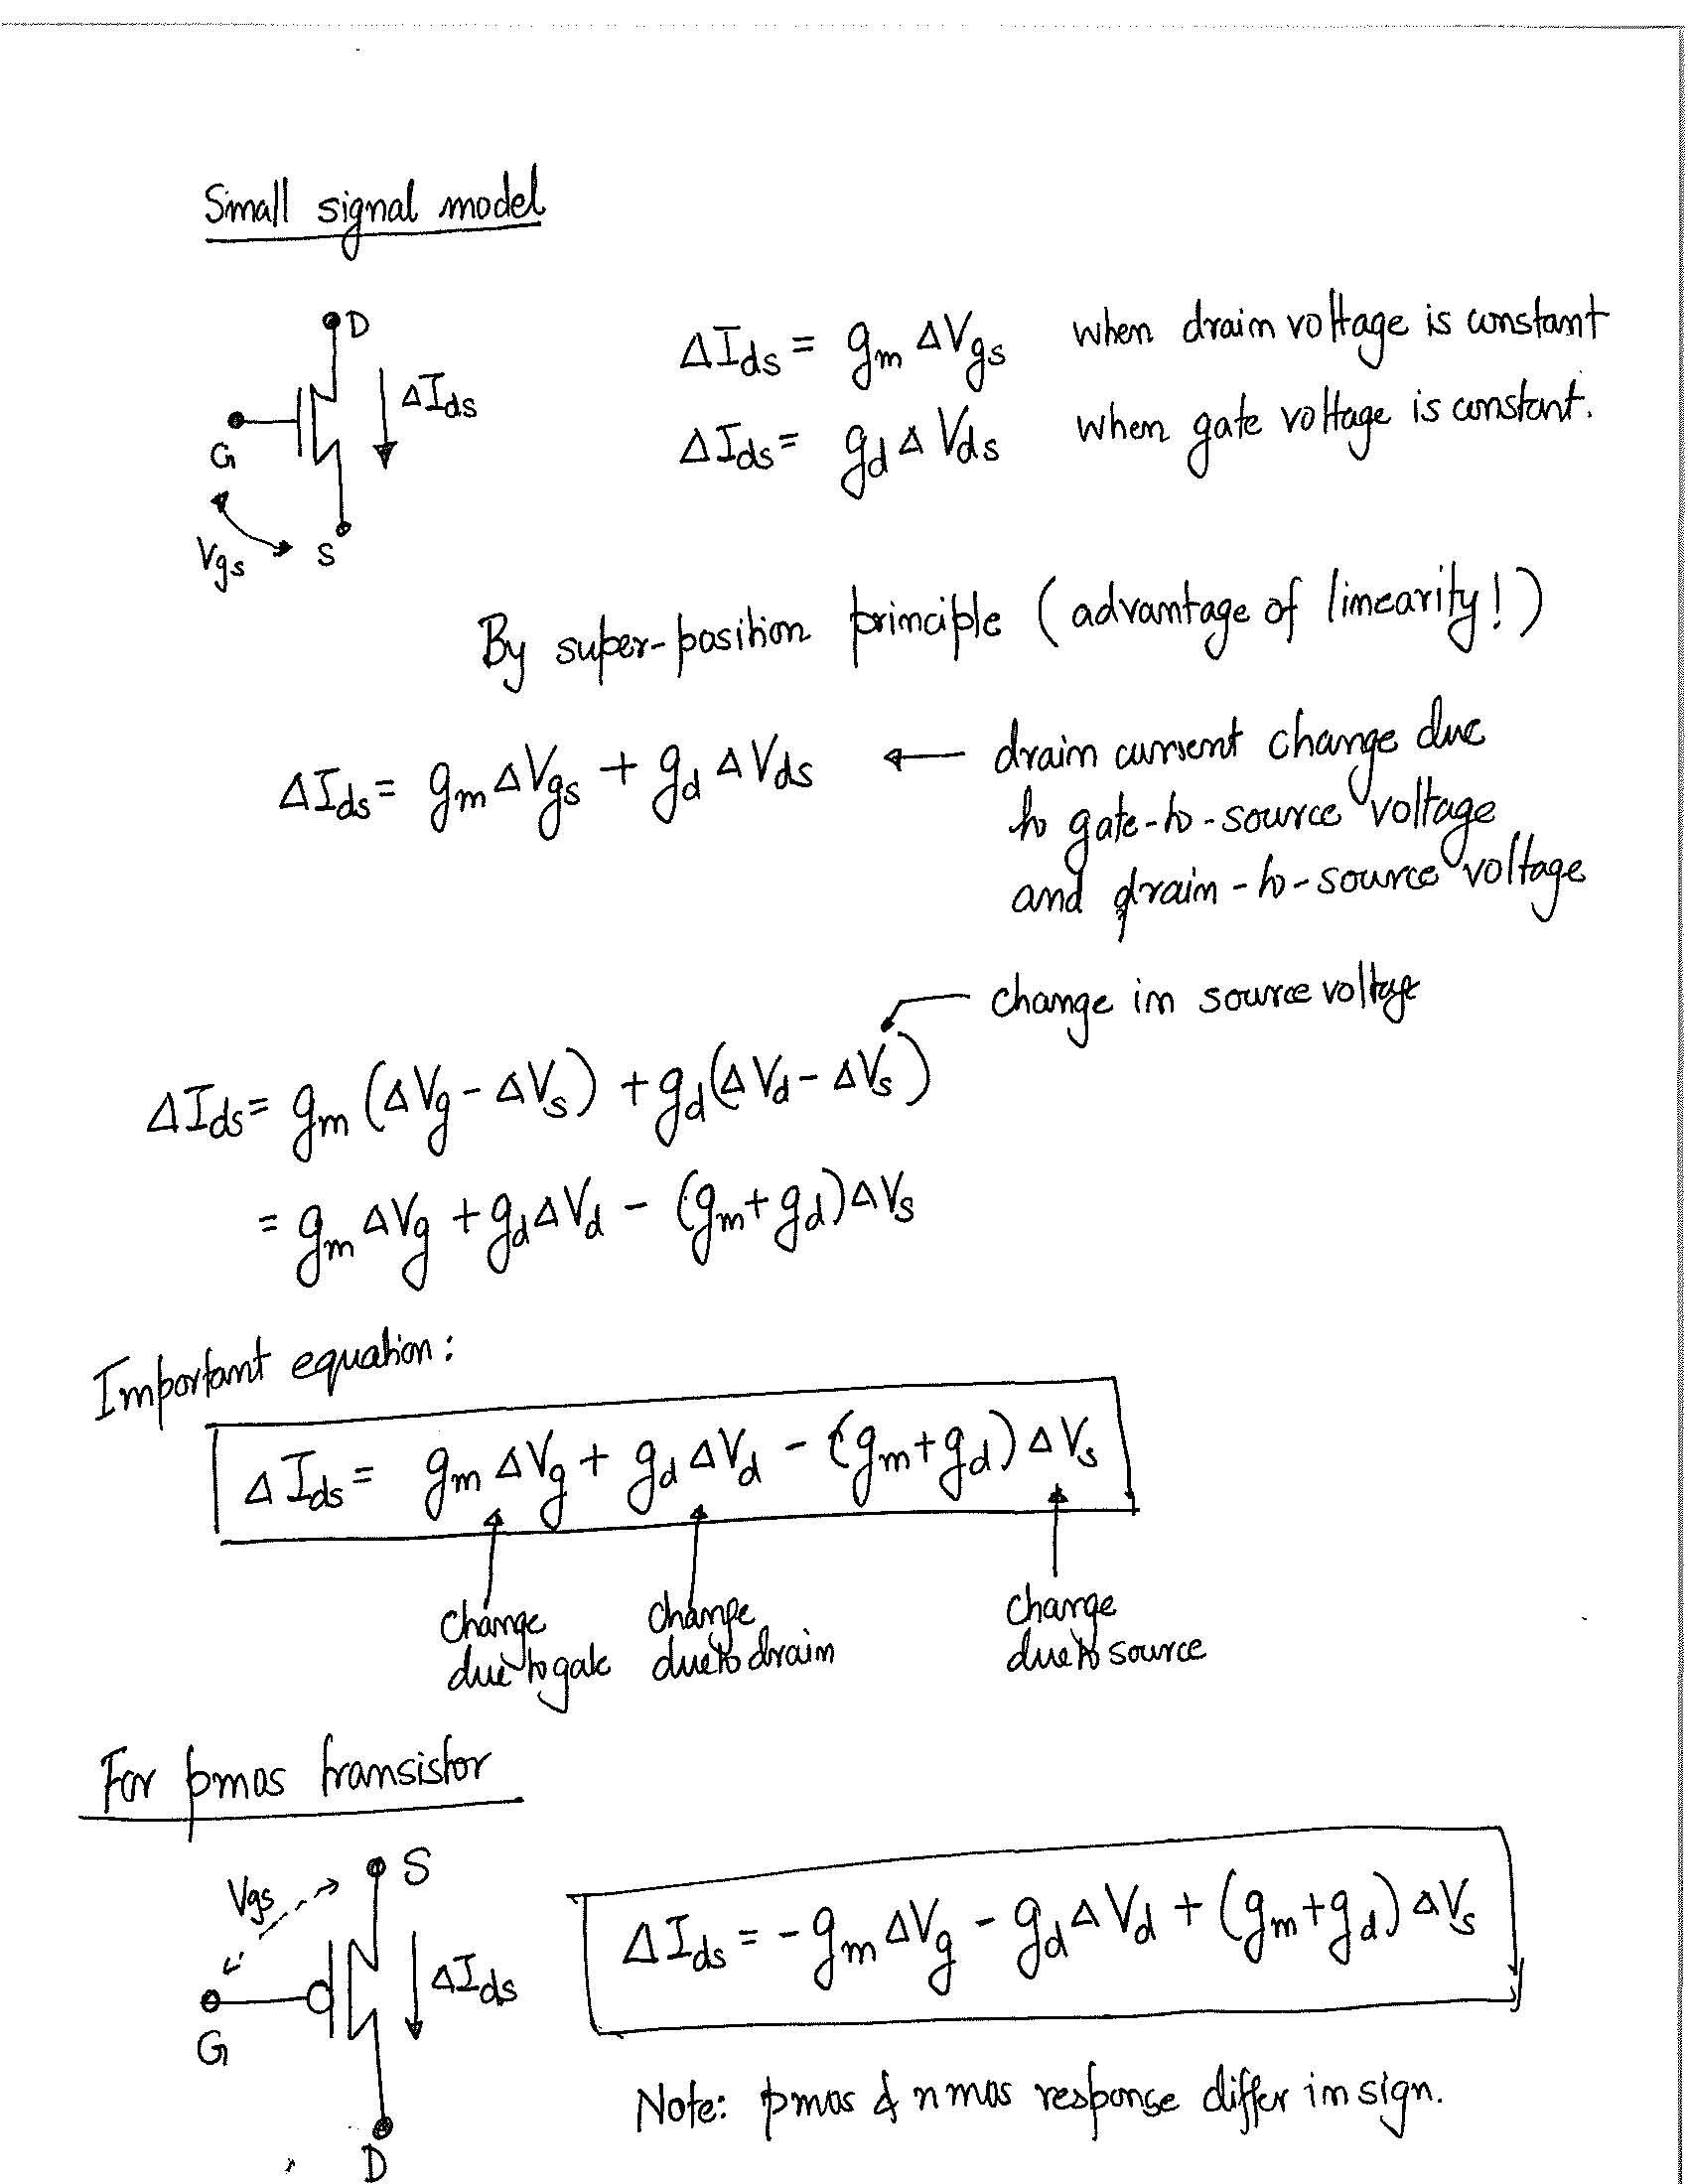 Small signal model
D
ΔIds
G
Vgs
S
ΔIds = gm ΔVgs when drain voltage is constant
ΔIds = gd ΔVds when gate voltage is constant.
By super-position principle (advantage of linearity!)
ΔIds = gm ΔVgs + gd ΔVds ← drain current change due
to gate-to-source voltage
and drain-to-source voltage
change in source voltage
ΔIds = gm (ΔVg - ΔVs) + gd (ΔVd - ΔVs)
= gm ΔVg + gd ΔVd - (gm + gd) ΔVs
Important equation:
ΔIds = gm ΔVg + gd ΔVd - (gm + gd) ΔVs
change
due to gate
change
due to drain
change
due to source
For pmos transistor
S
Vgs
ΔIds
G
D
ΔIds = - gm ΔVg - gd ΔVd + (gm + gd) ΔVs
Note: pmos & nmos response differ in sign.